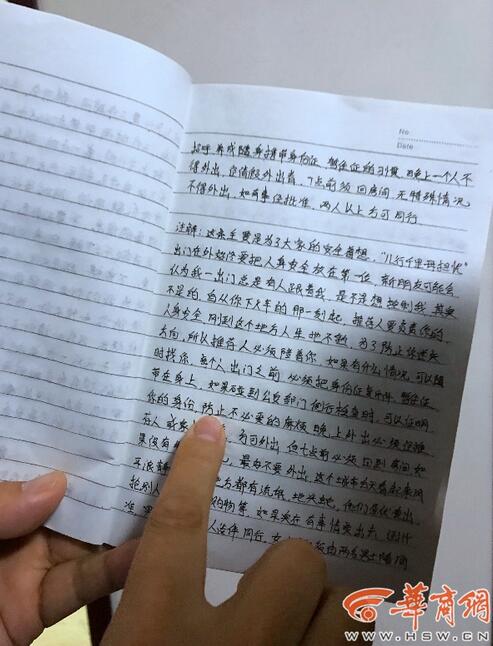 No.
Date
招呼 养成随身携带身份证、暂住证的习惯 晚上一个人不
得外出,应请假外出者,7点前须回房间,无特殊情况
不得外出,如有事经批准,两人以上方可同行.
注解:这条主要是为了大家的安全着想,"儿行千里母担忧"
出门在外始终要把人身安全放在第一位,新朋友可能会
认为我一出门总是有人跟着我,是不是想控制我 其实
不是的,自从你下火车的那一刻起,推荐人要负责你的
人身安全 刚到这个地方人生地不熟,为了防止你迷失
方向,所以推荐人必须陪着你,如果有什么情况,可以随
时找你,每个人出门之前 必须把身份证复印件、暂住证
带在身上,如果碰到公安部门例行检查时,可以证明
你的身份,防止不必要的麻烦 晚上外出必须经推
荐人或 方可外出,但七点前必须回到房间 如
果没有 ,最好不要外出,这个城市白天看起来风
平浪静 地方都有流氓 地头蛇,他们昼伏夜出,
抢别人 购物等,如果实在有事情要出去,经批
准 人陪伴同行,女 由两名男士陪同
华商网
WWW.HSW.CN